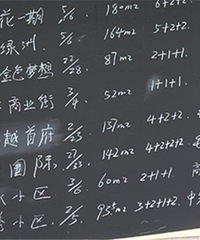 花一期 5/6 180m2 6+2+2
绿洲 5/6 164m2 5+2+2
金色梦想 22/28 87m2 2+1+1
商业街 3/4 52m2 1+1+1.
越首府 2/23 137m2 4+2+2.
国际 27/33 142m2 4+2+2
小区 3/6 60m2 2+1+1.
小区 2/5 93m2 3+2+1+2.